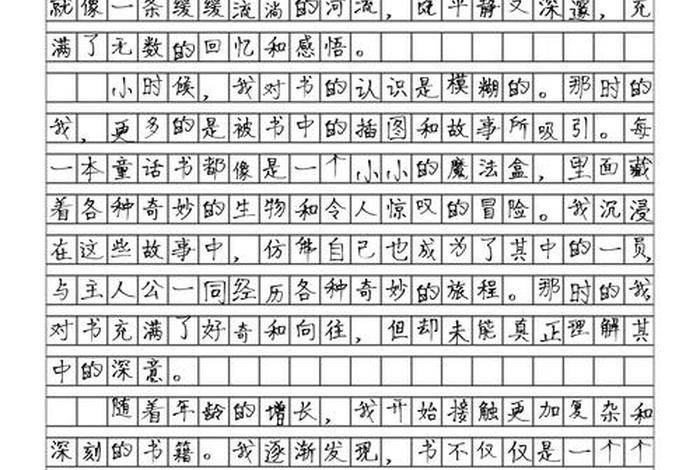 就像一条缓缓流淌的河流，既平静又深邃，充
满了无数的回忆和感悟。
小时候，我对书的认识是模糊的。那时的
我，更多的是被书中的插图和故事所吸引。每
一本童话书都像是一个小小的魔法盒，里面藏
着各种奇妙的生物和令人惊叹的冒险。我沉浸
在这些故事中，仿佛自己也成为了其中的一员，
与主人公一同经历各种奇妙的旅程。那时的我，
对书充满了好奇和向往，但却未能真正理解其
中的深意。
随着年龄的增长，我开始接触更加复杂和
深刻的书籍。我逐渐发现，书不仅仅是一个个